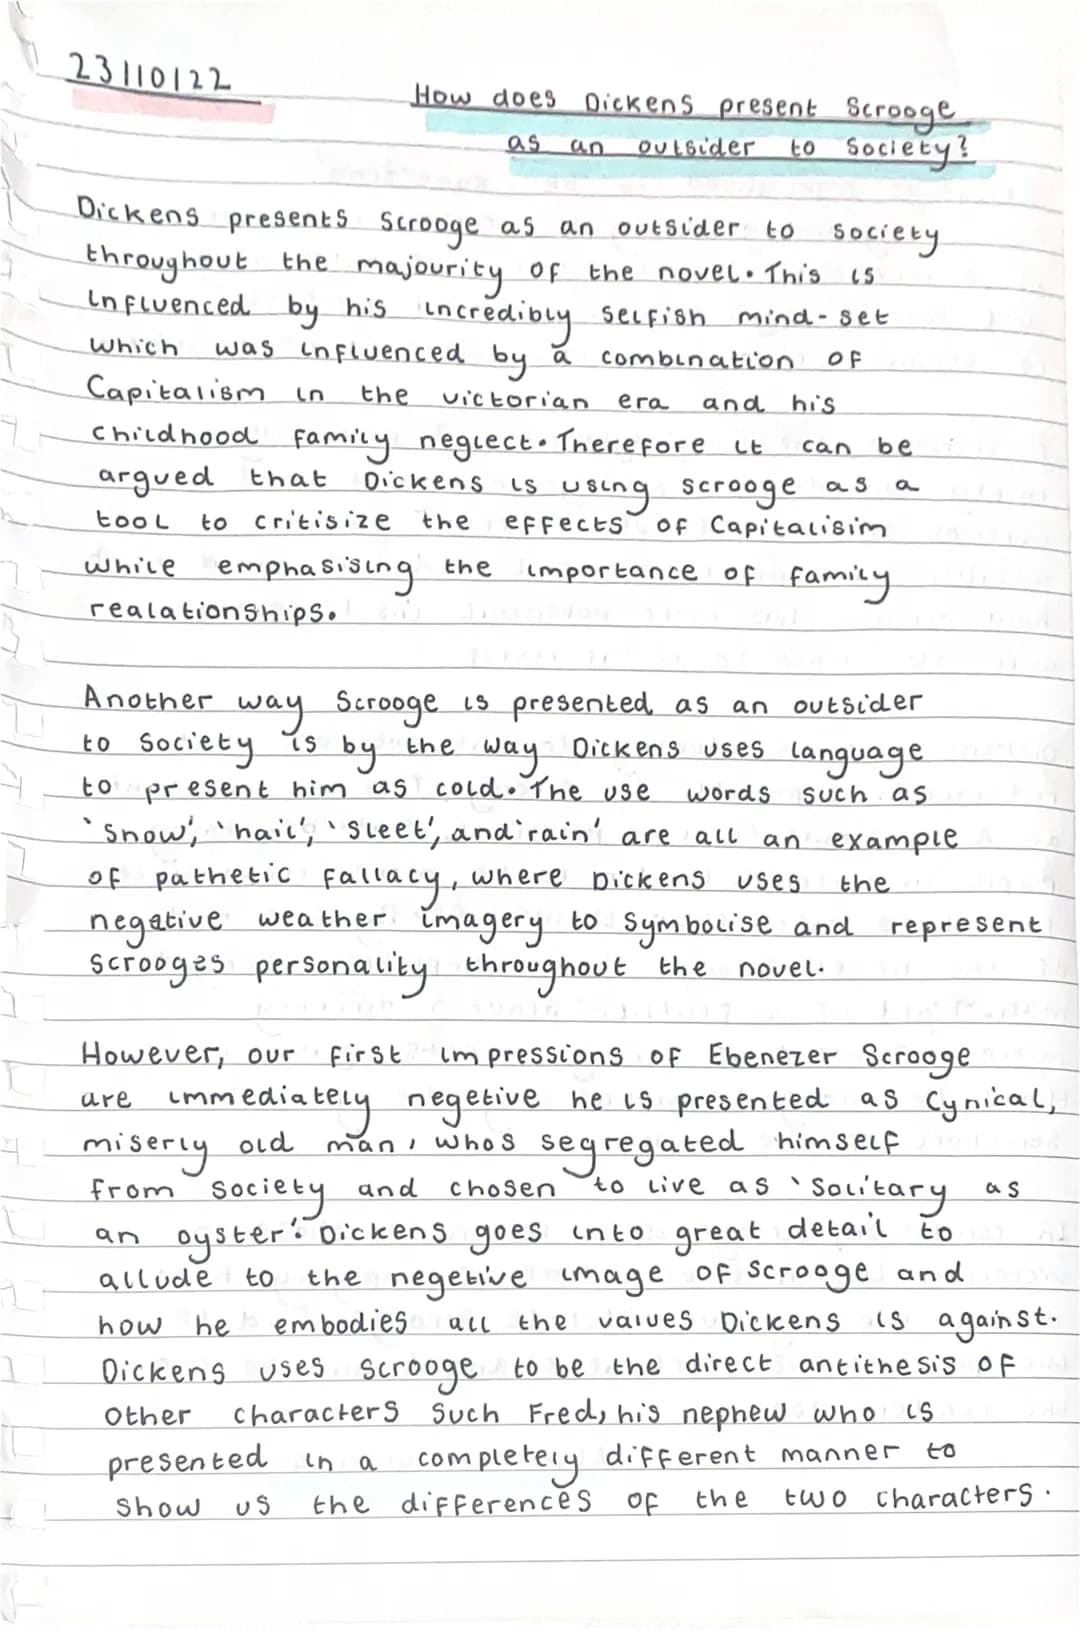 23/10/22
How does Dickens present Scrooge
as an outsider to Society?
Dickens presents Scrooge as an outsider to society
throughout the majourity of the novel. This is
influenced by his incredibly selfish mind-set
which was influenced by a combination of
Capitalism in the victorian era and his
childhood family neglect. Therefore it can be
argued that Dickens is using scrooge as a
tool to critisize the effects of Capitalisim
while emphasising the importance of family
realationships.
Another way Scrooge is presented as an outsider
to Society is by the way Dickens uses language
to present him as cold. The use words such as
'Snow', 'hail', 'Sleet', and 'rain' are all an example
of pathetic fallacy, where Dickens uses the
negative weather imagery to Symbolise and represent
Scrooges personality throughout the novel.
However, our first impressions of Ebenezer Scrooge
are immediately negetive he is presented as Cynical,
miserly old man, who's segregated himself
from society and chosen to live as 'Solitary as
an oyster'. Dickens goes into great detail to
allude to the negetive image of Scrooge and
how he embodies all the values Dickens is against.
Dickens uses scrooge to be the direct antithesis of
other characters Such Fred, his nephew who is
presented in a completely different manner to
Show us the differences of the two characters.